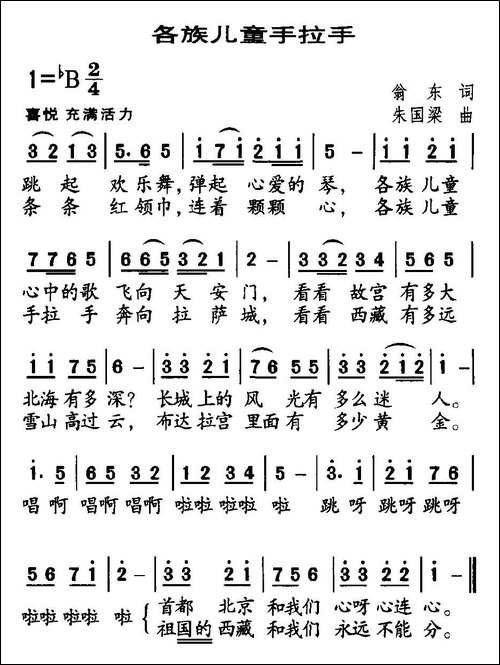 各族儿童手拉手
1=♭B 2/4
翁东 词
喜悦 充满活力
朱国梁 曲
3 2 1 3 | 5. 6 5 | i 7 i 2 i i | 5 - | i i 2 i |
跳起 欢乐舞,弹起 心爱的 琴, 各族儿童
条条 红领巾,连着 颗颗 心, 各族儿童
7 7 6 5 | 6 6 5 3 2 1 | 2 - | 3 3 2 3 4 | 5 6 5 |
心中的歌 飞向 天安门, 看看 故宫 有多大
手拉手 奔向 拉萨城, 看看 西藏 有多远
i i 7 5 | 6 - | 3 3 2 i | 7 6 5 5 | 3 3 2 i 2 | i - |
北海有多深? 长城上的风 光有多么迷 人。
雪山高过云, 布达拉宫里面有 多少黄 金。
i. 5 | 6 5 3 5 | 2 3 5 3 2 | 5 - | 3. i | 2 i 7 6 |
唱啊 唱啊唱啊 啦啦啦啦啦 啦 跳呀 跳呀跳呀
5 6 7 i | 2 - | 3 3 2 i | 7 5 6 | 3 3 2 2 | i - ||
啦啦啦啦 啦 首都 北京 和我们 心呀心连 心。
祖国的西藏 和我们 永远不能 分。